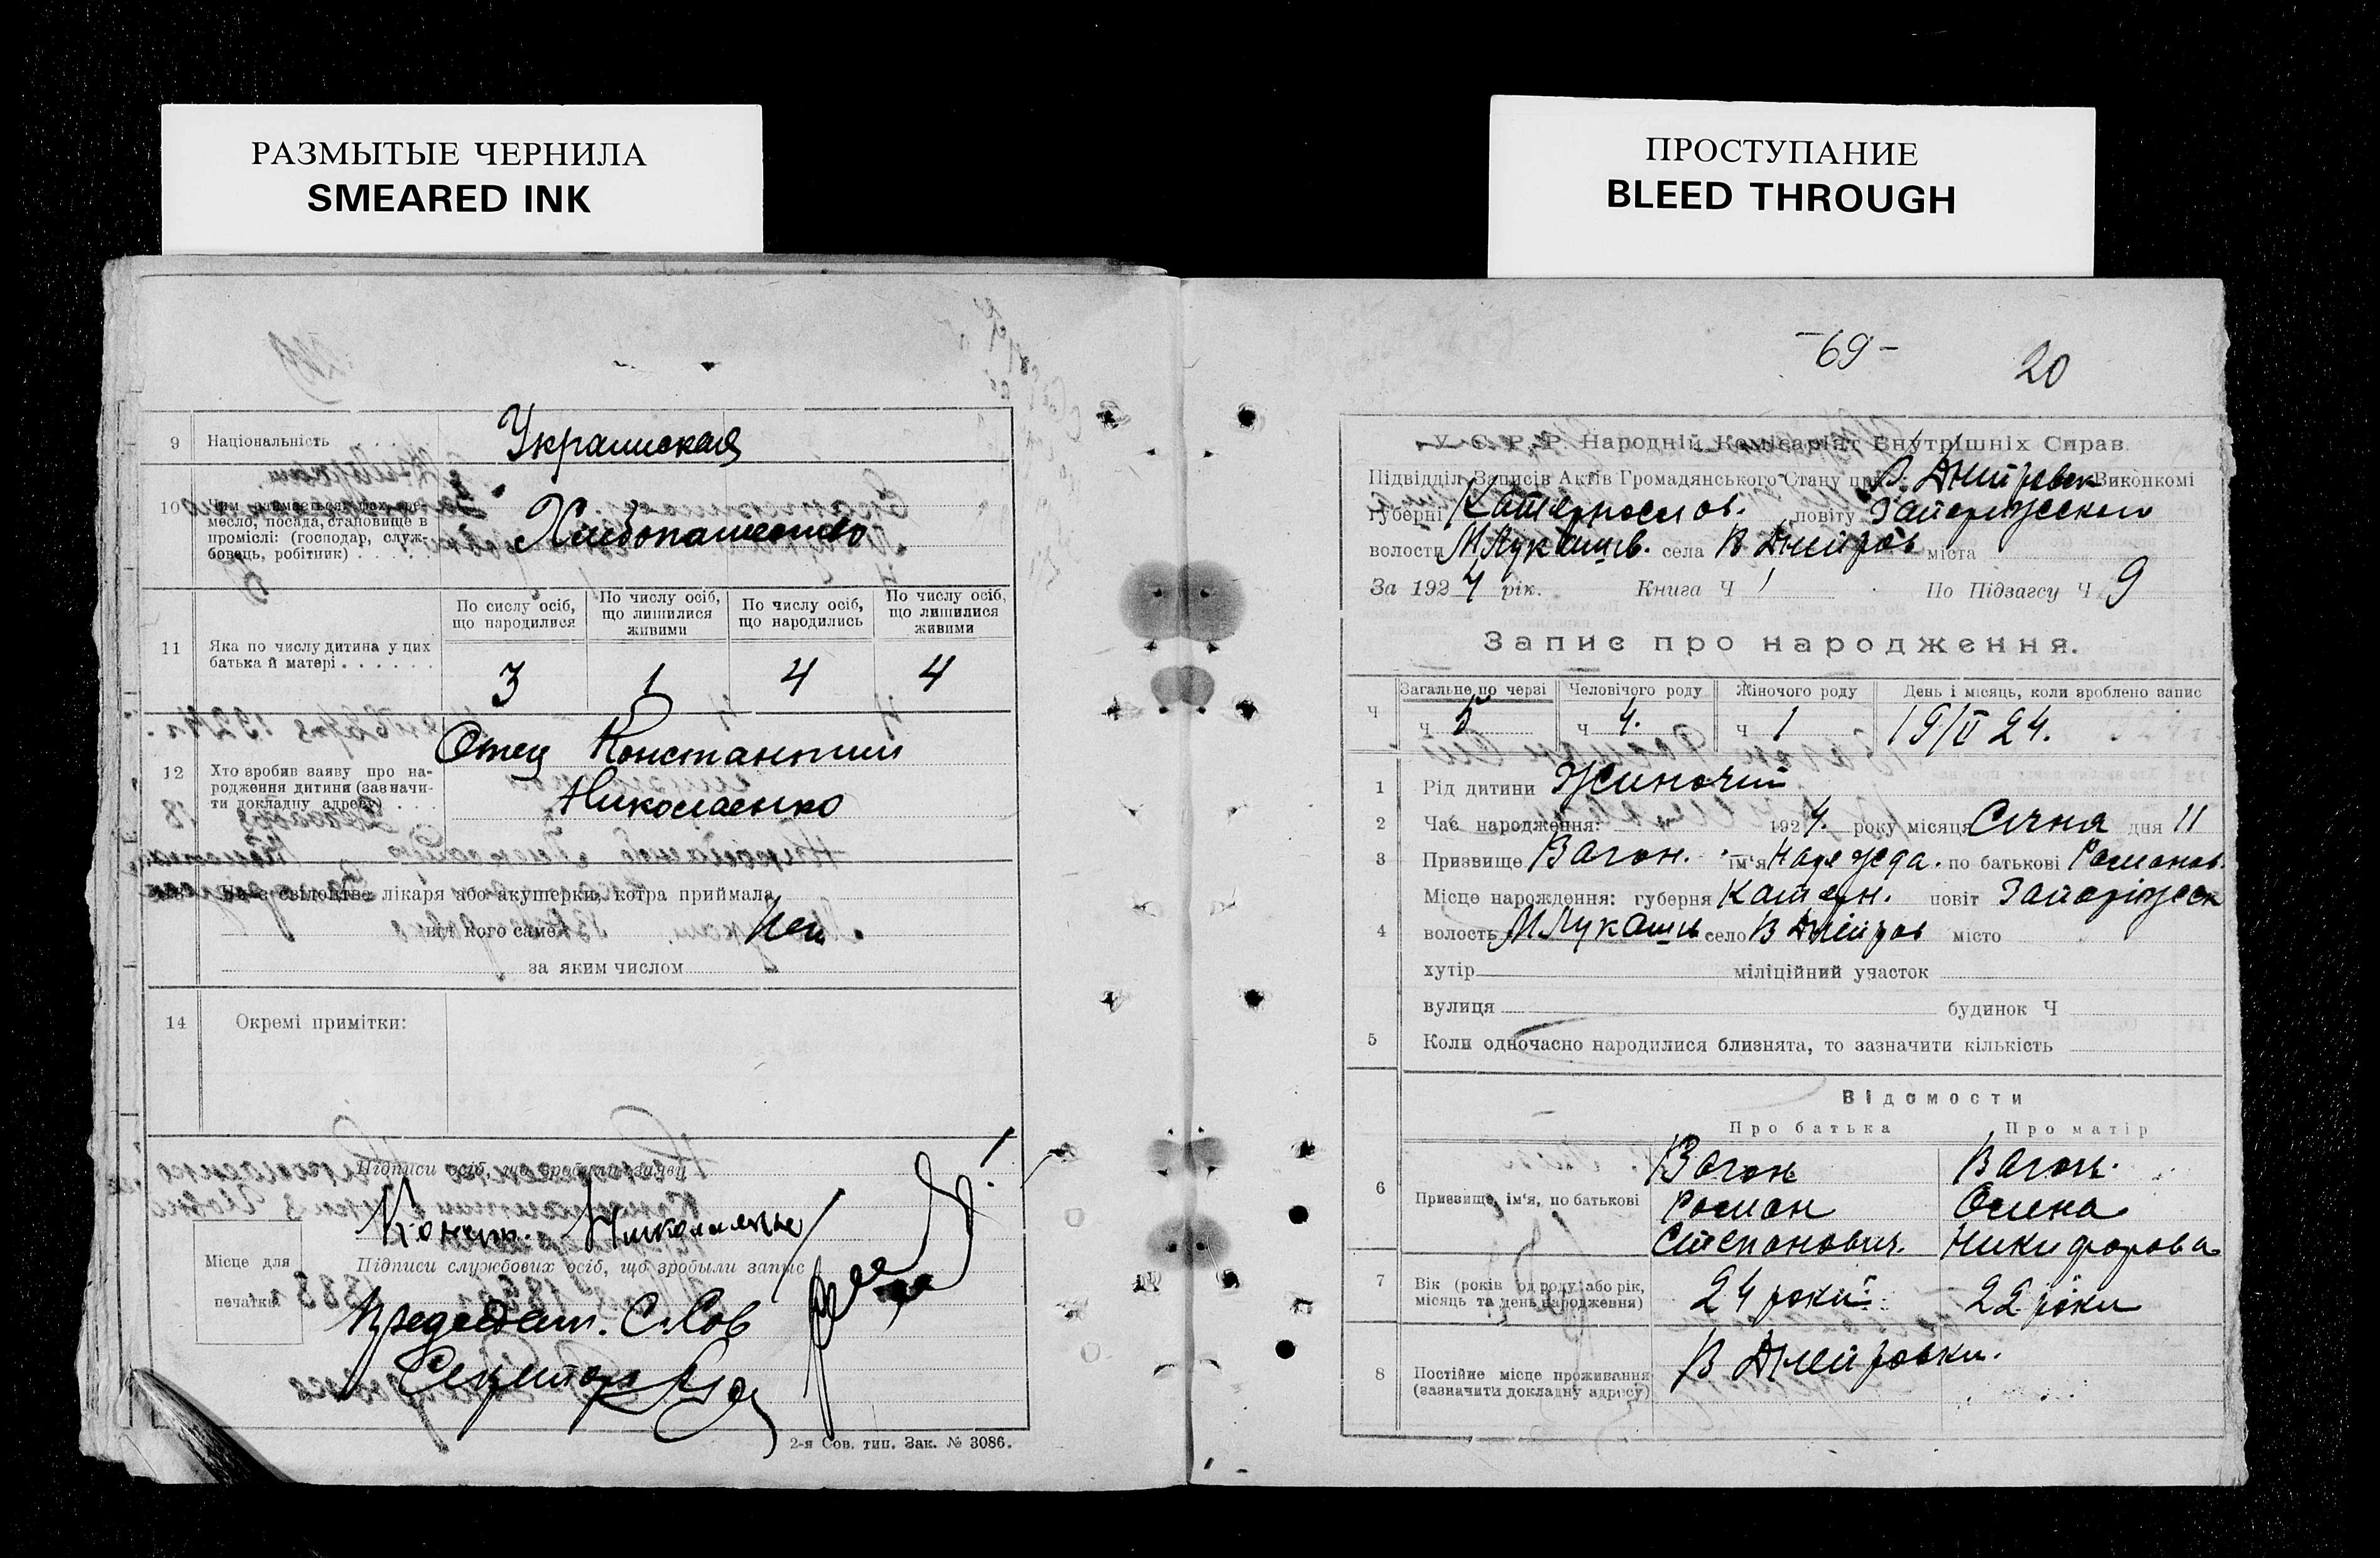 РАЗМЫТЫЕ ЧЕРНИЛА
SMEARED INK
ПРОСТУПАНИЕ
BLEED THROUGH
9 Національність Украинская
10
месло, посада, становище в
промислі: (господар, служ-
бовець, робітник) Хлибопашество
По сислу осіб, що народилися
По числу осіб, що лишилися живими
По числу осіб, що народились
По числу осіб, що лишилися живими
11 Яка по числу дитина у цих
батька й матері 3 1 4 4
Отец Константин
12 Хто зробив заяву про на-
родження дитини (зазначи-
ти докладну адресу) Николаенко
свідоцтво лікаря або акушерки, котра приймала
від кого саме Нет
за яким числом
14 Окремі примітки:
Підписи осіб, що зробили заяву
Конст. Николаенко
Місце для
печатки
Підписи службових осіб, що зробыли запис
Председат.
Секретарь
2-я Сов. тип. Зак. № 3086.
-69-
20
У. С. Р. Р. Народній Комісаріят Внутрішніх Справ.
Підвідділ Записів Актів Громадянського Стану при В. Дмитровск Виконкомі
губерні Катеринослов. повіту Запорижского
волости М Лукашів. села В Дмитров міста
За 1924 рік. Книга Ч 1 По Підзагсу Ч 9
Запис про народження.
Ч
Загальне по черзі Человічого роду Жіночого роду День і місяць, коли зроблено запис
ч 5 ч 4. ч 1 19/II 24.
1 Рід дитини Жиночий
2 Час народження: 1924. року місяця Січня дня 11
3 Призвище Вагон. ім'я Надежда. по батькові Романов.
Місце народження: губерня Катерн. повіт Запоріжеск
4 волость М Лукашів село В Дмитров місто
хутір міліційний участок
вулиця будинок Ч
5 Коли одночасно народилися близнята, то зазначити кількість
Відомости
Про батька Про матір
Вагон Вагон.
6 Призвище, ім'я, по батькові Роман Олена
Степанович. Никифорова
7 Вік (років од роду або рік,
місяць та день народження) 24 роки 22 роки
8 Постійне місце проживання
(зазначити докладну адресу) В Дмитровки.